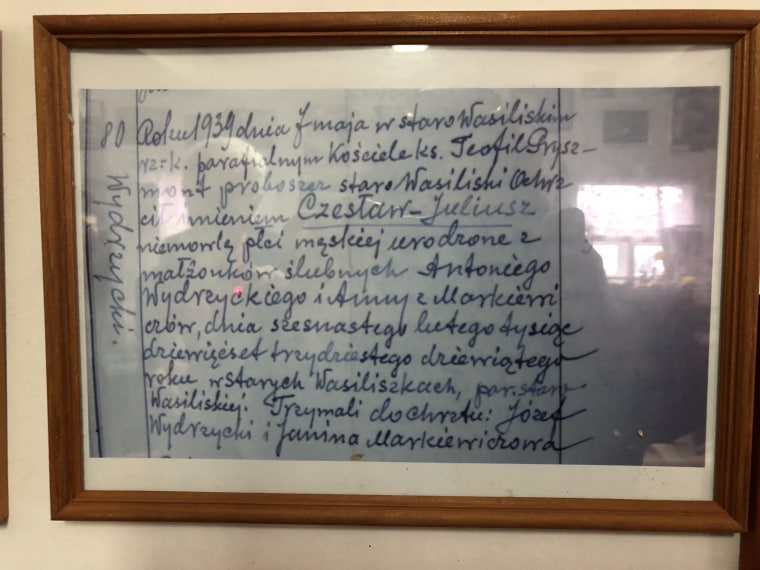 80
Wydrzycki.
Roku 1939 dnia 7 maja w staro Wasiliskim
rz-k. parafialnym Kościele ks. Teofil Prysz-
mont proboszcz staro Wasiliski Ochrz
cił imieniem Czesław-Juliusz
niemowlę płci męskiej urodzone z
małżonków ślubnych Antoniego
Wydrzyckiego i Anny z Markiewi
czów, dnia szesnastego lutego tysiąc
dziewięćset trzydziestego dziewiątego
roku w Starych Wasiliszkach, par. staro
Wasiliskiej. Trzymali do chrztu: Józef
Wydrzycki i Janina Markiewiczowa